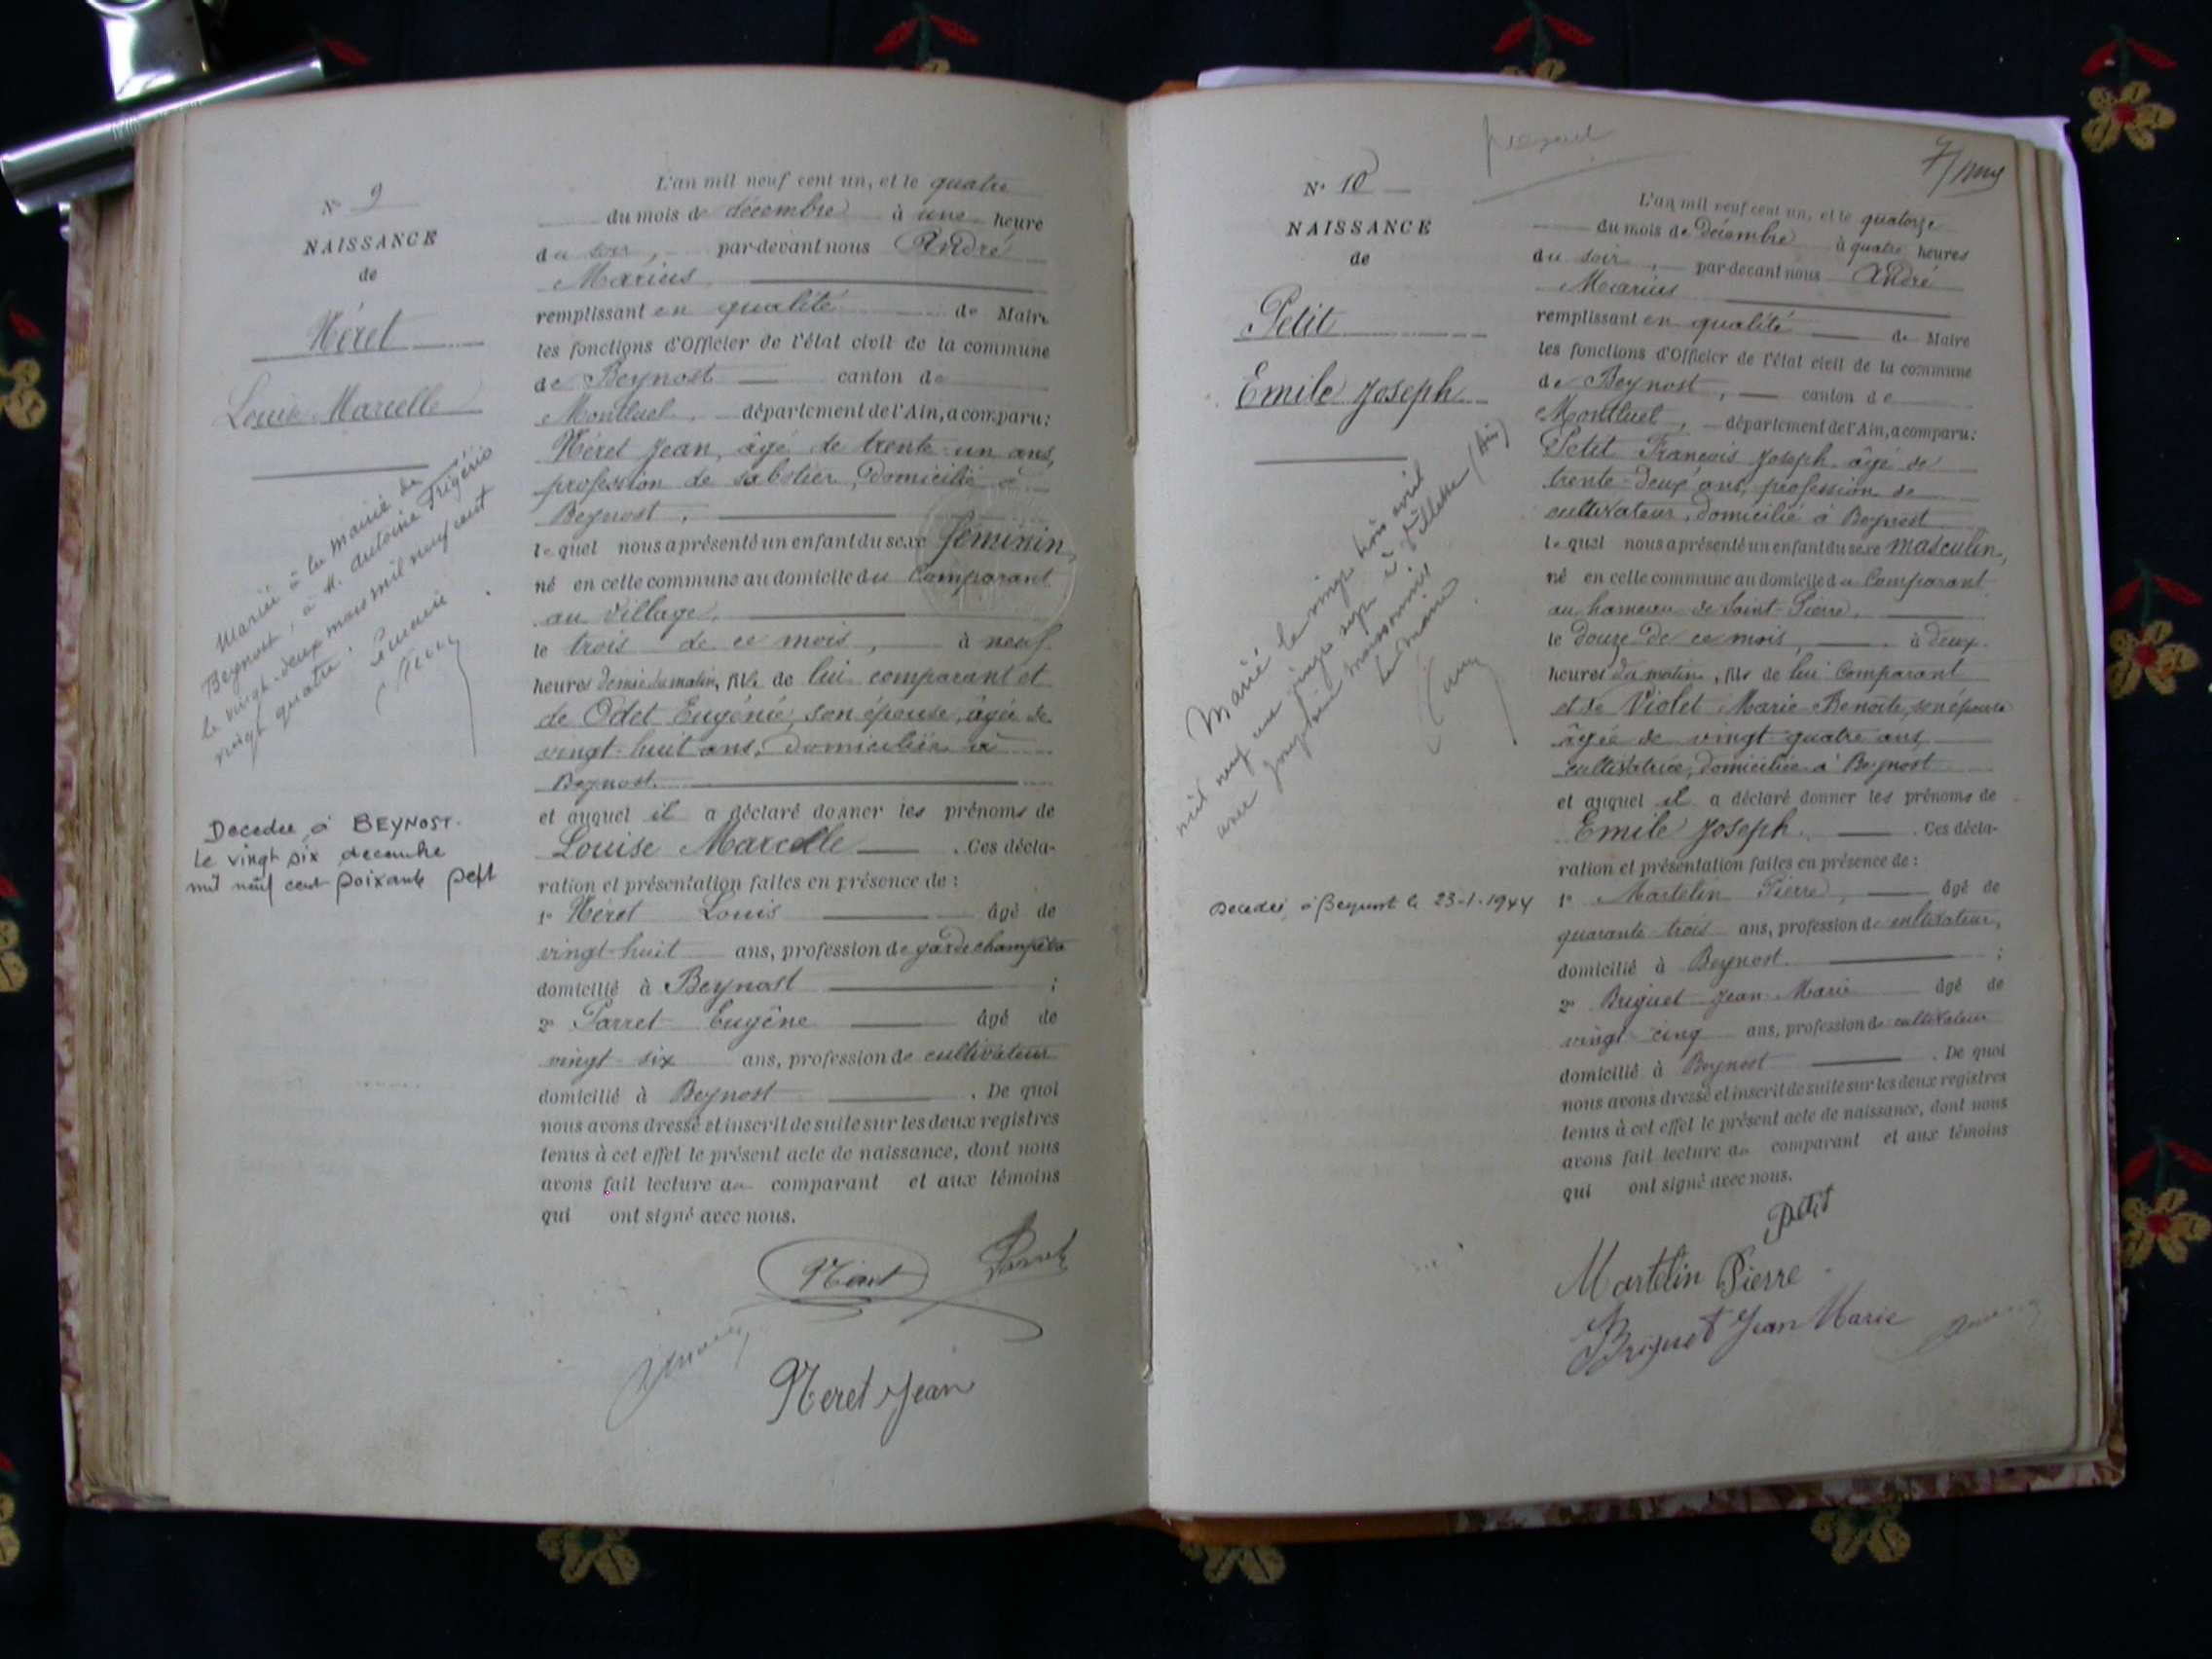 N° 9
NAISSANCE
de
Néret
Louise Marcelle
Mariée à la mairie de
Beynost, à M. Antoine Frigério
le vingt-deux mars mil neuf cent
vingt quatre.
Décédée à BEYNOST.
le vingt six décembre
mil neuf cent soixante sept
L'an mil neuf cent un, et le quatre
du mois de décembre à une heure
du soir, par-devant nous André
Marius
remplissant en qualité de Maire
les fonctions d'Officier de l'état civil de la commune
de Beynost canton de
Montluel, département de l'Ain, a comparu:
Néret Jean, âgé de trente-un ans,
profession de sabotier, domicilié à
Beynost,
lequel nous a présenté un enfant du sexe féminin,
né en cette commune au domicile du Comparant
au village,
le trois de ce mois, à neuf
heures demie du matin, fille de lui comparant et
de Odet Eugénie, son épouse, âgée de
vingt-huit ans, domiciliée à
Beynost.
et auquel il a déclaré donner les prénoms de
Louise Marcelle . Ces décla-
ration et présentation faites en présence de :
1° Néret Louis âgé de
vingt-huit ans, profession de garde champêtre
domicilié à Beynost ;
2° Parret Eugène âgé de
vingt-six ans, profession de cultivateur
domicilié à Beynost . De quoi
nous avons dressé et inscrit de suite sur les deux registres
tenus à cet effet le présent acte de naissance, dont nous
avons fait lecture au comparant et aux témoins
qui ont signé avec nous.
Néret Parret
Neret Jean
N° 10
NAISSANCE
de
Petit
Emile Joseph
Marié le vingt trois avril
mil neuf cent vingt sept à Villette (Ain)
avec Joséphine
Le Maire
Décédé à Beynost le 23-1-1944
L'an mil neuf cent un, et le quatorze
du mois de Décembre à quatre heures
du soir, par-devant nous André
Marius
remplissant en qualité de Maire
les fonctions d'Officier de l'état civil de la commune
de Beynost, canton de
Montluel, département de l'Ain, a comparu:
Petit François Joseph âgé de
trente-deux ans, profession de
cultivateur, domicilié à Beynost
lequel nous a présenté un enfant du sexe masculin,
né en cette commune au domicile du Comparant
au hameau de Saint-Pierre,
le douze de ce mois, à deux
heures du matin, fils de lui Comparant
et de Violet Marie Benoîte, son épouse
âgée de vingt-quatre ans,
cultivatrice, domiciliée à Beynost
et auquel il a déclaré donner les prénoms de
Emile Joseph . Ces décla-
ration et présentation faites en présence de :
1° Martelin Pierre, âgé de
quarante-trois ans, profession de cultivateur,
domicilié à Beynost ;
2° Briguet Jean-Marie âgé de
vingt-cinq ans, profession de cultivateur
domicilié à Beynost . De quoi
nous avons dressé et inscrit de suite sur les deux registres
tenus à cet effet le présent acte de naissance, dont nous
avons fait lecture au comparant et aux témoins
qui ont signé avec nous.
Petit
Martelin Pierre
Briguet Jean Marie